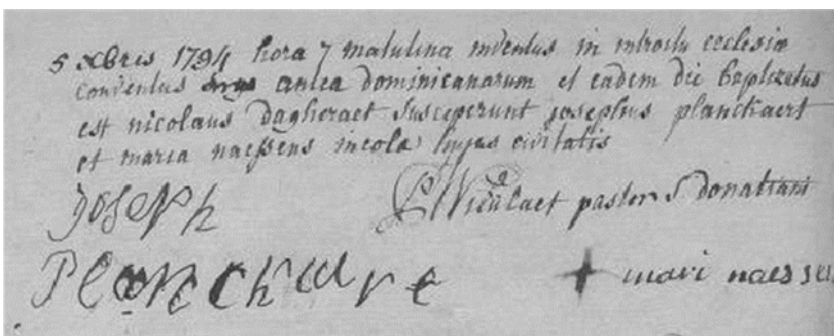 5 xbris 1794 hora 7 matutina inventus in introitu ecclesiæ
conventus antea dominicanarum et eadem die baptizatus
est nicolaus dagheraet susceperunt josephus planckaert
et maria naessens incolæ hujus civitatis
Joseph
pastor S donatiani
Planckare
+ mari naessen